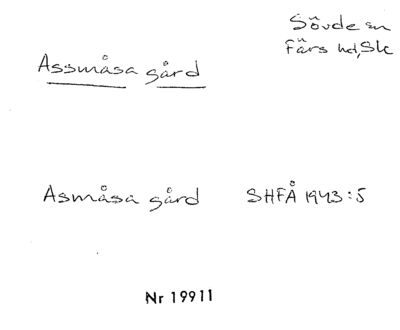 Sövde sn
Färs hd, Sk
Assmåsa gård
Asmåsa gård SHFÅ 1943:5
Nr 19911